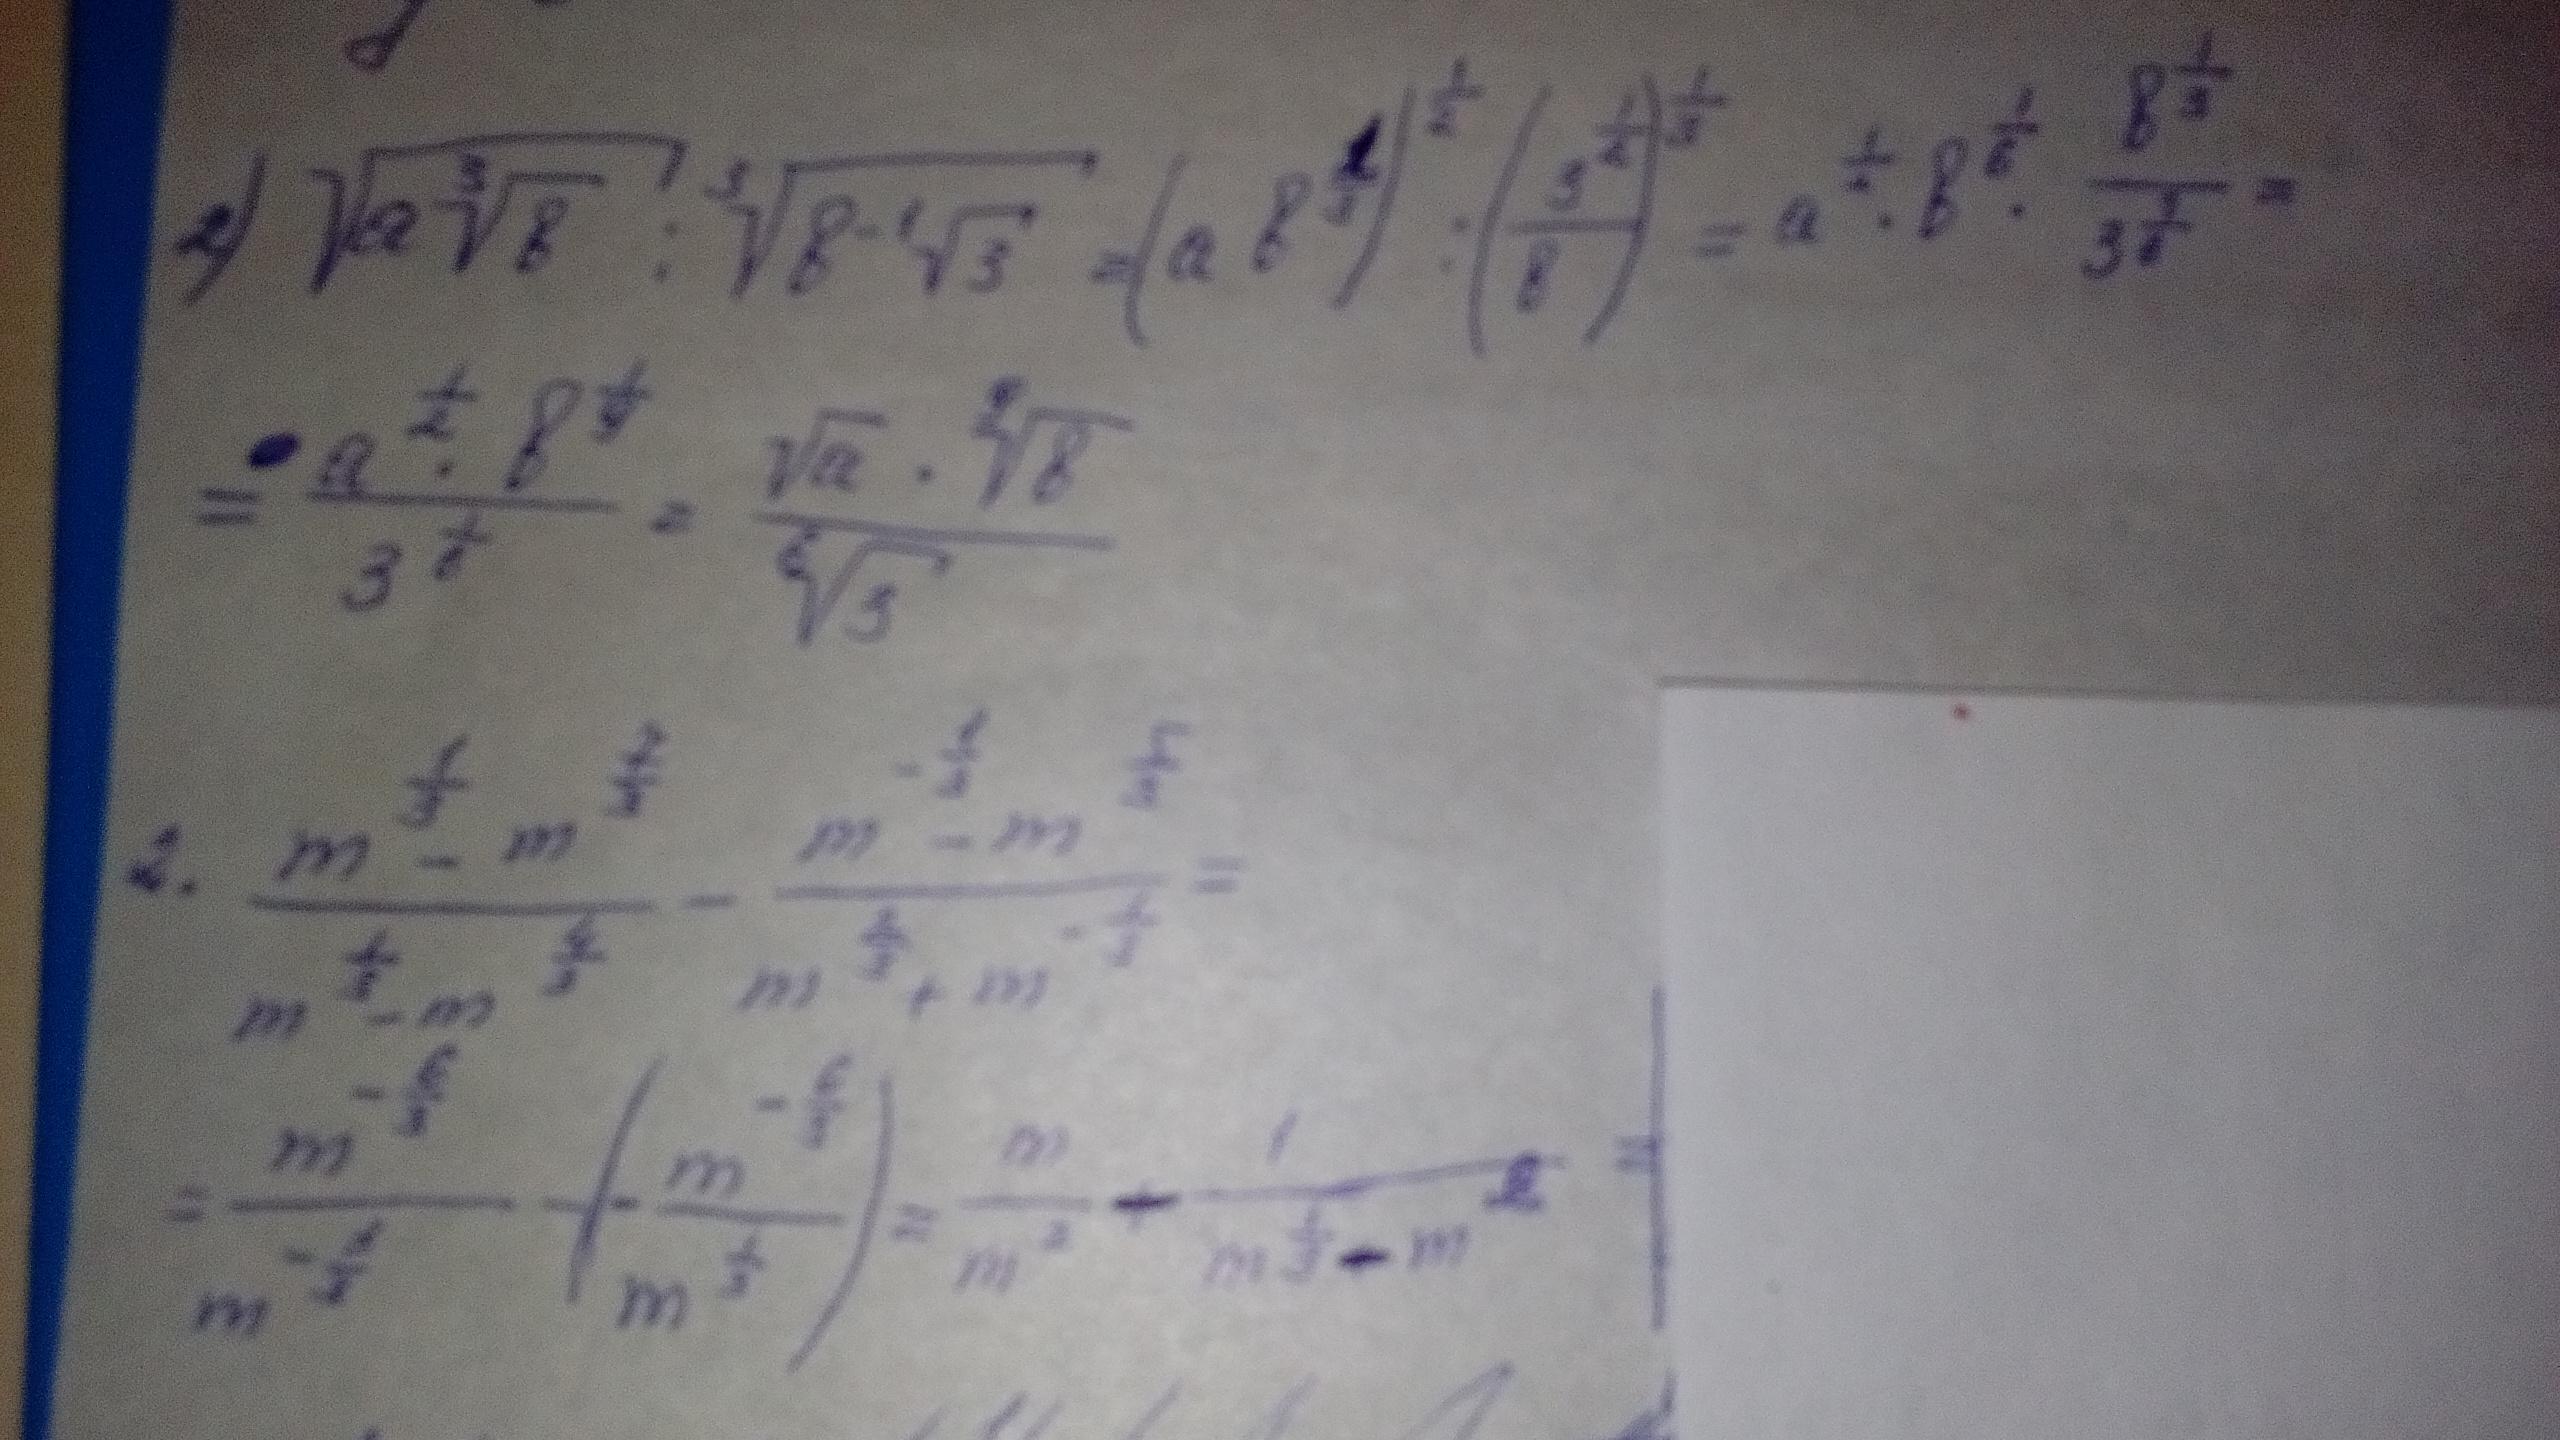 г) √(a ∛b) : ∛(b⁻¹√3) = (a b^(1/3))^(1/2) : (3^(1/2)/b)^(1/3) = a^(1/2) · b^(1/6) · b^(1/3)/3^(1/6) =
= (a^(1/2) · b^(1/9))/3^(1/6) = (√a · ⁹√b)/⁶√3
2. (m^(1/3) - m^(7/3))/(m^(1/3) - m^(4/3)) - (m^(-1/3) - m^(5/3))/(m^(2/3) + m^(-1/3)) =
= m^(-6/3)/m^(-3/3) - (- m^(-6/3)/m^(1/3)) = m/m² + 1/(m^(1/3) - m²) =